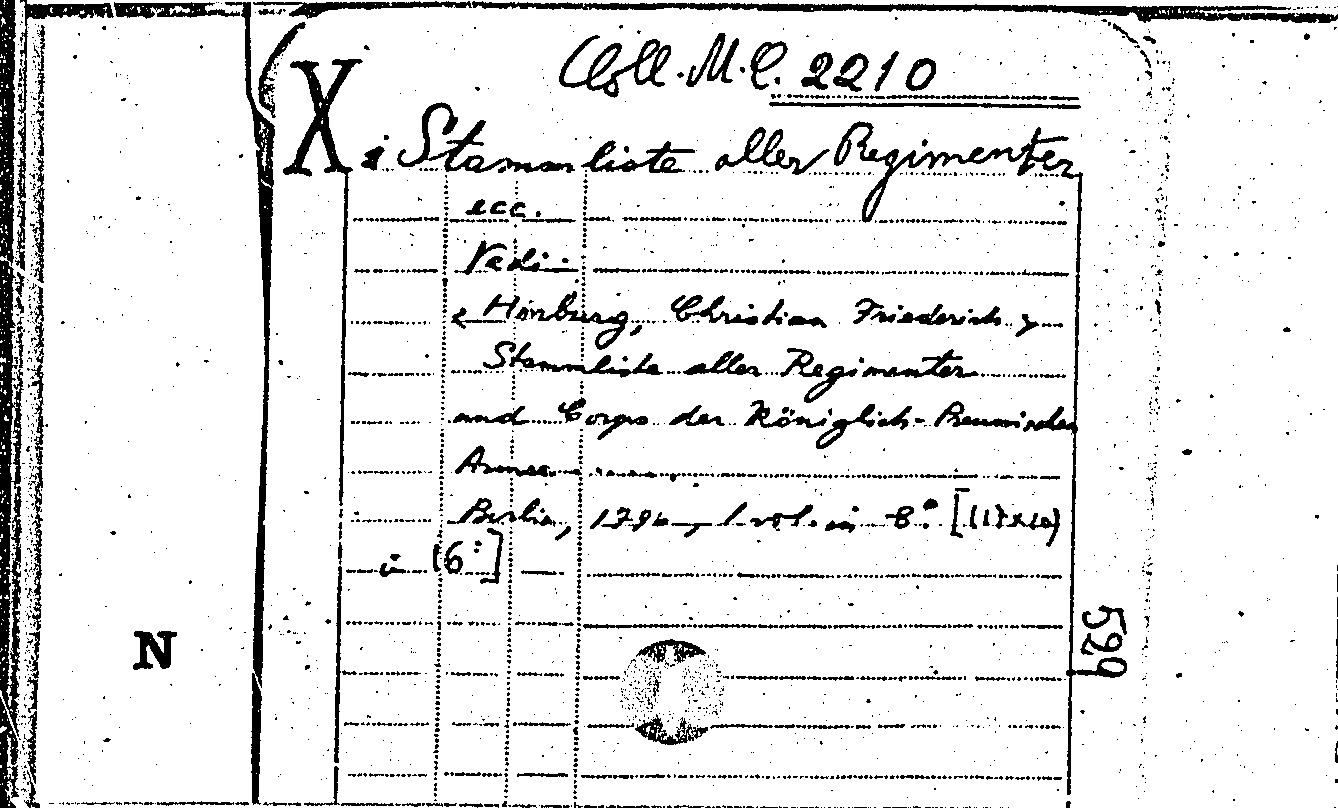 Coll. M. C. 2210
X Stammliste aller Regimenter
ecc.
Vedi:
< Himburg, Christian Friederich >
Stammliste aller Regimenter
und Corps der Königlich-Preussischen
Armee.......
Berlin, 1796, 1 vol. in 8.° [(17x10)
(6°]
599
N